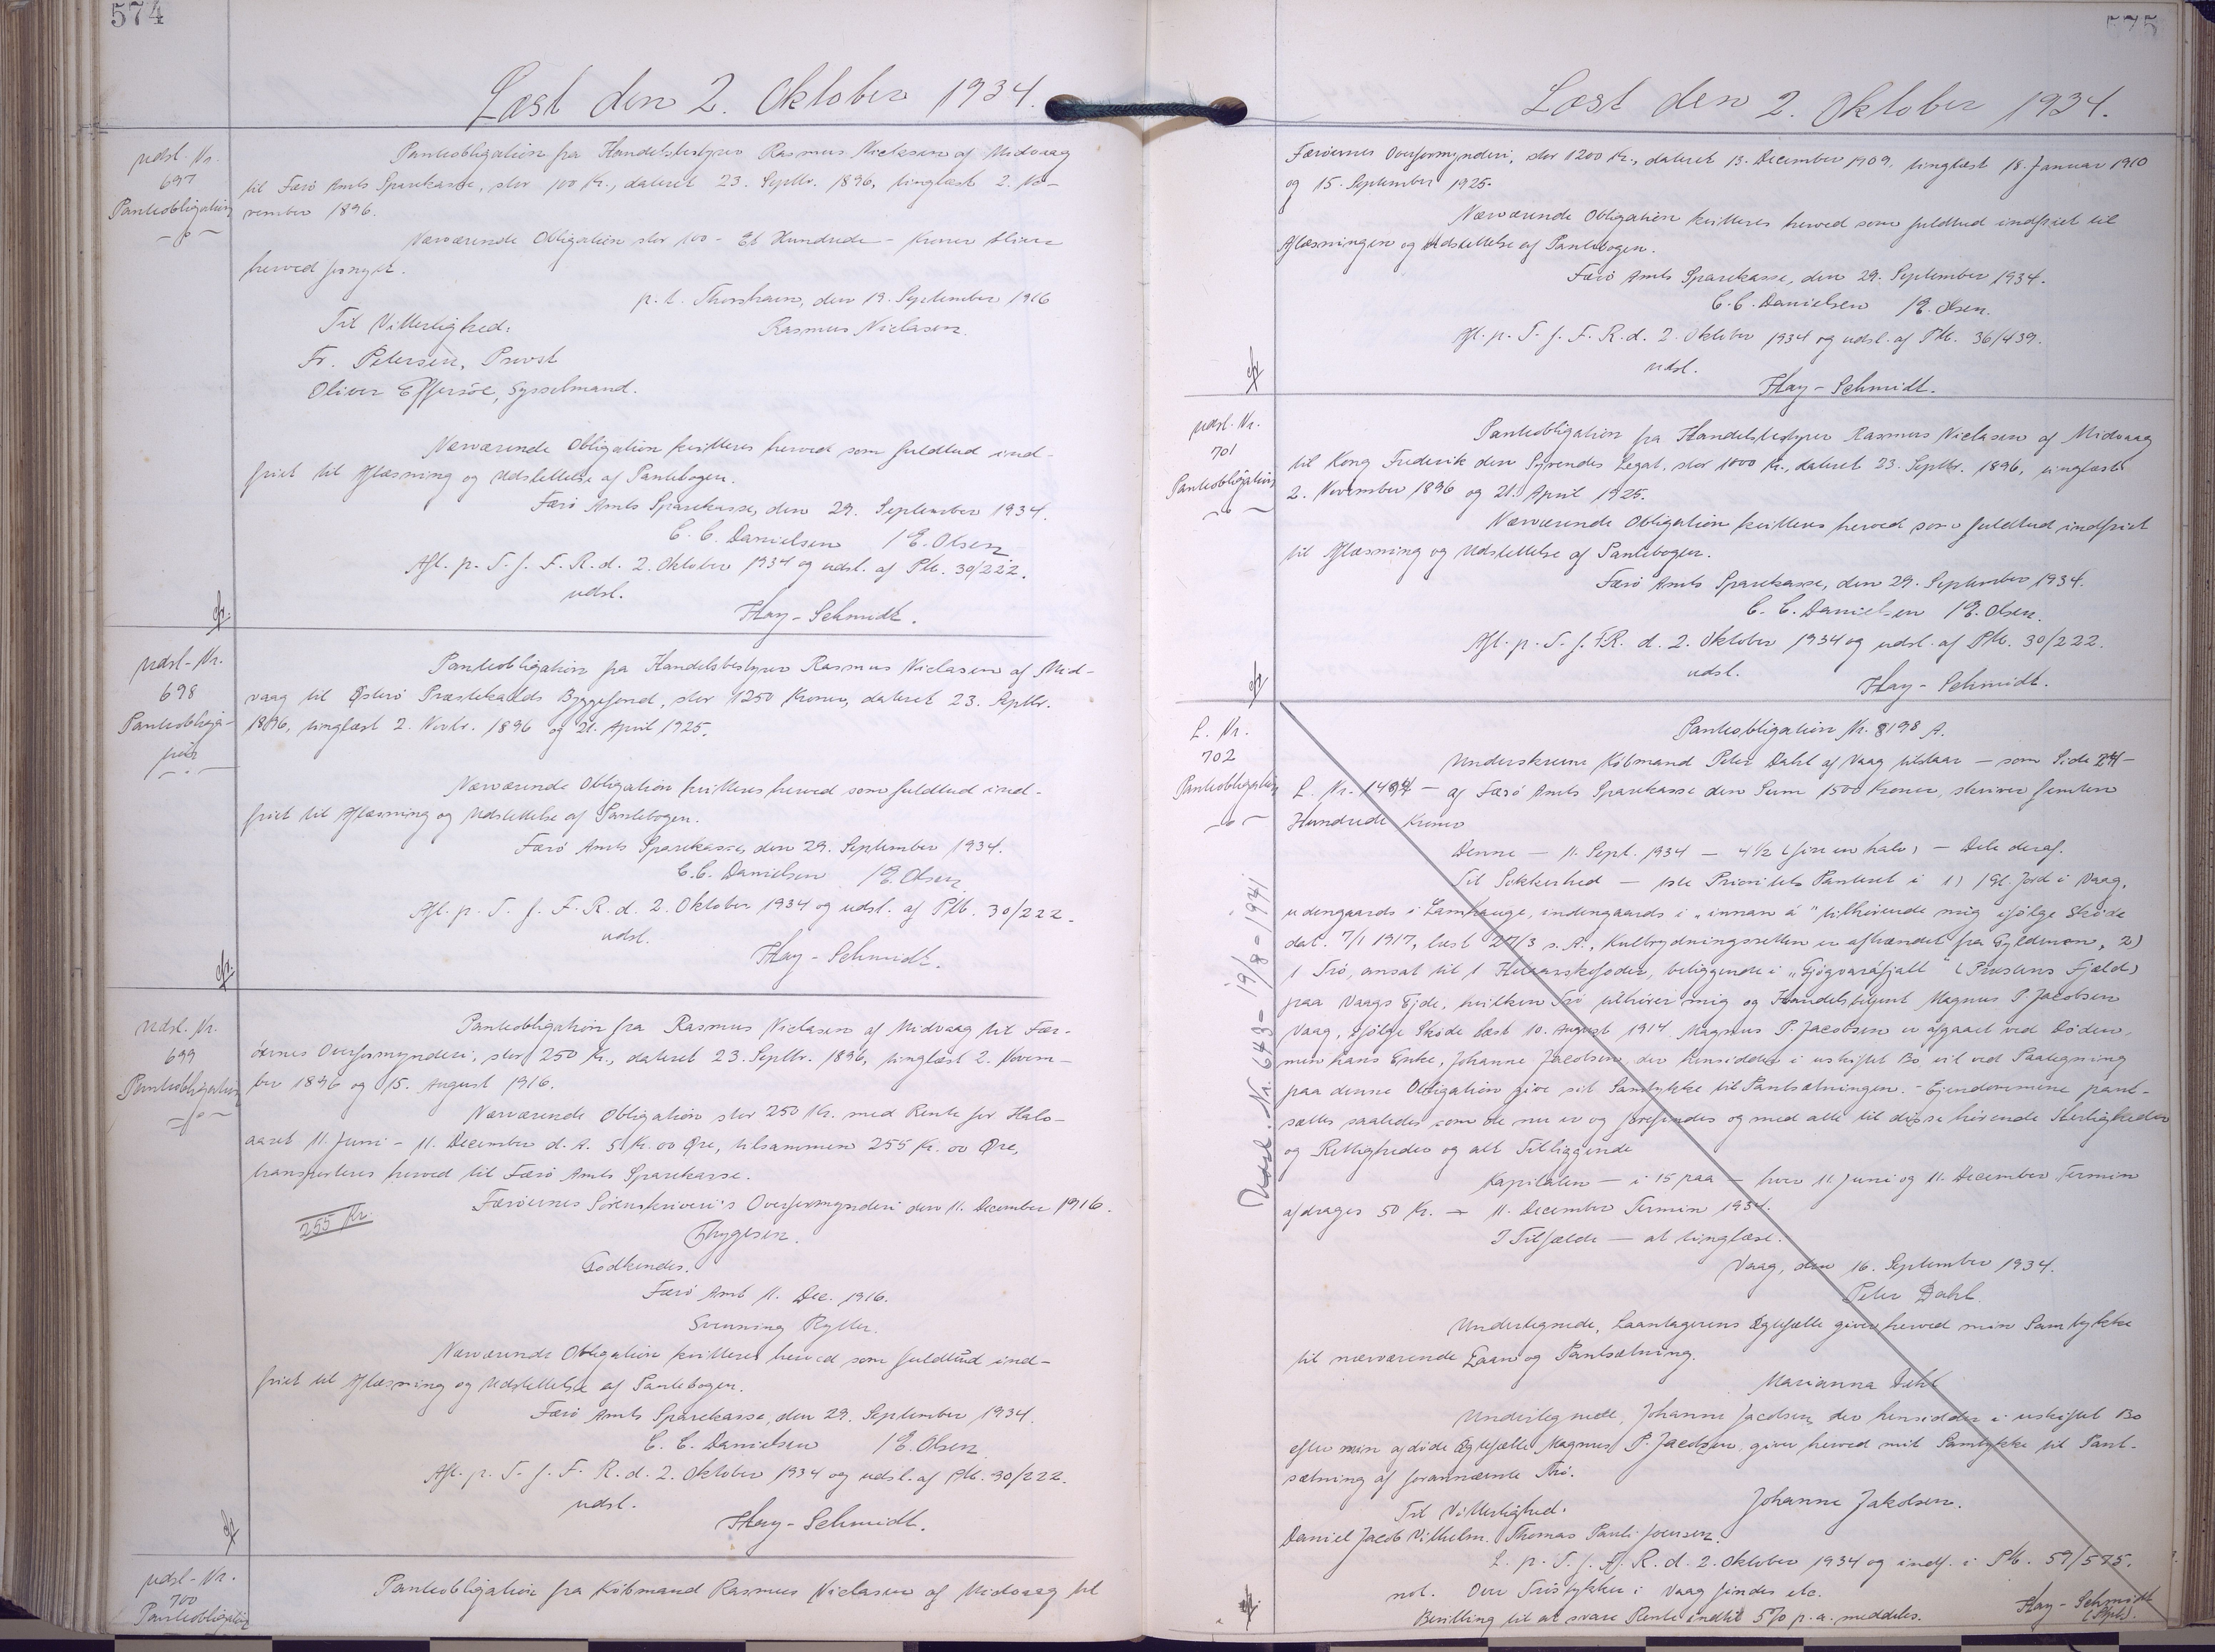 574
Læst den 2. Oktober 1934.
udsl. Nr.
697
Panteobligation
Panteobligation fra Handelsbestyrer Rasmus Niclasen af Midvaag
til Færø Amts Sparekasse, stor 100 Kr., dateret 23. Septbr. 1896, tinglæst 2. No-
vember 1896.
Nærværende Obligation stor 100 - Et Hundrede - Kroner bliver
herved fornyet.
p. t. Thorshavn, den 19. September 1916
Til Vitterlighed: Rasmus Niclasen.
Fr. Petersen, Provst
Oliver Effersøe, Sysselmand.
Nærværende Obligation kvitteres herved som fuldtud ind-
friet til Aflæsning og Udslettelse af Pantebogen.
Færø Amts Sparekasse, den 29. September 1934.
C. C. Danielsen / E. Olsen
Afl. p. T. f. F. R. d. 2. Oktober 1934 og udsl. af Ptb. 30/222.
udsl.
Hay-Schmidt.
udsl. Nr.
698
Panteobliga-
tion
Panteobligation fra Handelsbestyrer Rasmus Niclasen af Mid-
vaag til Østerø Præstekalds Byggefond, stor 1250 Kroner, dateret 23. Septbr.
1896, tinglæst 2. Novbr. 1896 og 21. April 1925.
Nærværende Obligation kvitteres herved som fuldtud ind-
friet til Aflæsning og Udslettelse af Pantebogen.
Færø Amts Sparekasse, den 29. September 1934.
C. C. Danielsen / E. Olsen
Afl. p. T. f. F. R. d. 2. Oktober 1934 og udsl. af Ptb. 30/222.
udsl.
Hay-Schmidt.
udsl. Nr.
699
Panteobligation
Panteobligation fra Rasmus Niclasen af Midvaag til Fær-
øernes Overformynderi, stor 250 Kr., dateret 23. Septbr. 1896, tinglæst 2. Novem-
ber 1896 og 15. August 1916.
Nærværende Obligation stor 250 Kr. med Rente for Halv-
aaret 11. Juni - 11. December d. A. 5 Kr. 00 Øre, tilsammen 255 Kr. 00 Øre,
transporteres herved til Færø Amts Sparekasse.
Færøernes Sorenskriveri's Overformynderi den 11. December 1916.
255 Kr.
Thygesen.
Godkendes.
Færø Amt 11. Dec. 1916.
Svenning Rytter.
Nærværende Obligation kvitteres herved som fuldtud ind-
friet til Aflæsning og Udslettelse af Pantebogen.
Færø Amts Sparekasse, den 29. September 1934.
C. C. Danielsen / E. Olsen
Afl. p. T. f. F. R. d. 2. Oktober 1934 og udsl. af Ptb. 30/222.
udsl.
Hay-Schmidt.
udsl. Nr.
700
Panteobligation
Panteobligation fra Købmand Rasmus Niclasen af Midvaag til
575
Læst den 2. Oktober 1934.
Færøernes Overformynderi, stor 1200 Kr., dateret 13. December 1909, tinglæst 18. Januar 1910
og 15. September 1925.
Nærværende Obligation kvitteres herved som fuldtud indfriet til
Aflæsningen og Udslettelse af Pantebogen.
Færø Amts Sparekasse, den 29. September 1934.
C. C. Danielsen / E. Olsen.
Afl. p. T. f. F. R. d. 2. Oktober 1934 og udsl. af Ptb. 36/439.
udsl.
Hay-Schmidt.
udsl. Nr.
701
Panteobligation
Panteobligation fra Handelsbestyrer Rasmus Niclasen af Midvaag
til Kong Frederik den Syvendes Legat, stor 1000 Kr., dateret 23. Septbr. 1896, tinglæst
2. November 1896 og 21. April 1925.
Nærværende Obligation kvitteres herved som fuldtud indfriet
til Aflæsning og Udslettelse af Pantebogen.
Færø Amts Sparekasse, den 29. September 1934.
C. C. Danielsen / E. Olsen.
Afl. p. T. f. F. R. d. 2. Oktober 1934 og udsl. af Ptb. 30/222.
udsl.
Hay-Schmidt.
L. Nr.
702
Panteobligation
Udsl. Nr. 643 - 19/8 - 1941
Panteobligation Nr. 8198 A.
Underskrevne Købmand Peter Dahl af Vaag tilstaar — som Side 24 -
L. Nr. 1494 — af Færø Amts Sparekasse den Sum 1500 Kroner, skriver femten
Hundrede Kroner
Denne — 11. Sept. 1934 — 4 1/2 (fire en halv) — Dele deraf.
Til Sikkerhed — 1ste Prioritets Panteret i 1) 1 Gl. Jord i Vaag,
udengaards i Lamhauge, indengaards i "innan á" tilhørende mig ifølge Skøde
dat. 7/1 1917, læst 27/3 s. A., Kulbrydningsretten er afhændet fra Gyldnen, 2)
1 Trø, ansat til 1 Helaarskofoder, beliggende i "Gjógvaráfjall" (Præstens Fjæld)
paa Vaags Ejde, hvilken Trø tilhører mig og Handelsbetjent Magnus P. Jacobsen
Vaag, ifølge Skøde læst 10. August 1914. Magnus P. Jacobsen er afgaaet ved Døden,
men hans Enke, Johanne Jacobsen, der hensidder i uskiftet Bo, vil ved Paategning
paa denne Obligation give sit Samtykke til Pantsætningen. - Ejendommene pant-
sættes saaledes som de nu er og forefindes og med alle til disse hørende Herligheder
og Rettigheder og alt Tilliggende
Kapitalen — i 15 paa — hver 11. Juni og 11. December Termin
afdrages 50 Kr. — 11. December Termin 1934.
I Tilfælde — at tinglæse.
Vaag, den 16. September 1934.
Peter Dahl.
Undertegnede, Laantagerens Ægtefælle giver herved min Samtykke
til nærværende Laan og Pantsætning.
Marianna Dahl
Undertegnede, Johanne Jacobsen, der hensidder i uskiftet Bo
efter min afdøde Ægtefælle Magnus P. Jacobsen, giver herved mit Samtykke til Pant-
sætning af forannævnte Trø.
Til Vitterlighed. Johanne Jakobsen.
Daniel Jacob Vilhelm. Thomas Pauli Joensen.
L. p. T. f. F. R. d. 2. Oktober 1934 og indf. i Ptb. 59/575.
not. Over Tristykker i Vaag findes etc.
Bevilling til at svare Rente indtil 5% p. a. meddeles. Hay-Schmidt